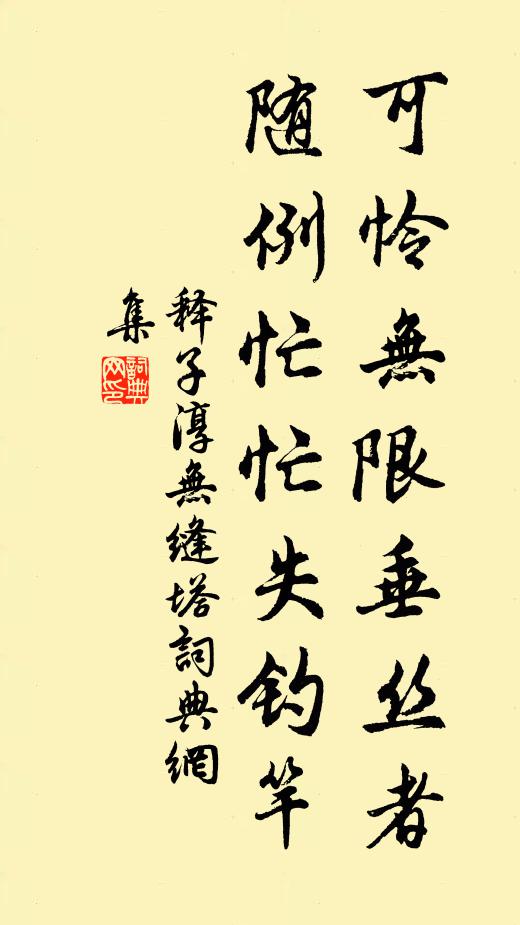 可怜無限垂丝者
随例忙忙失钓竿
释子淳無缝塔詞典網
集
詞典网印